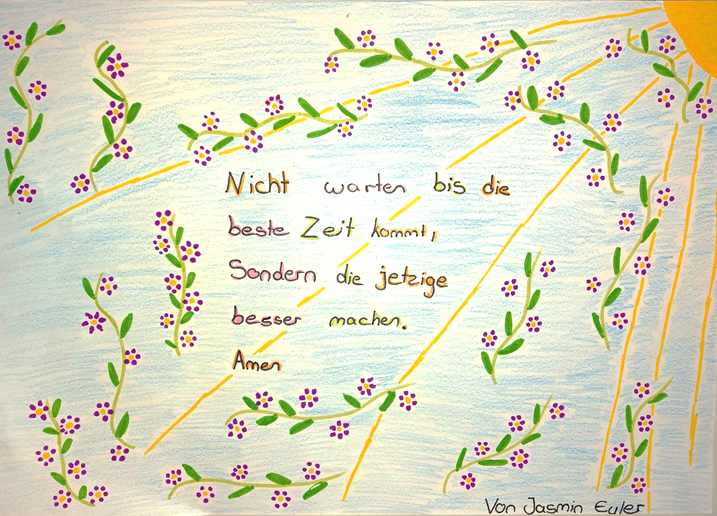 Nicht warten bis die
beste Zeit kommt,
Sondern die jetzige
besser machen.
Amen
Von Jasmin Euler